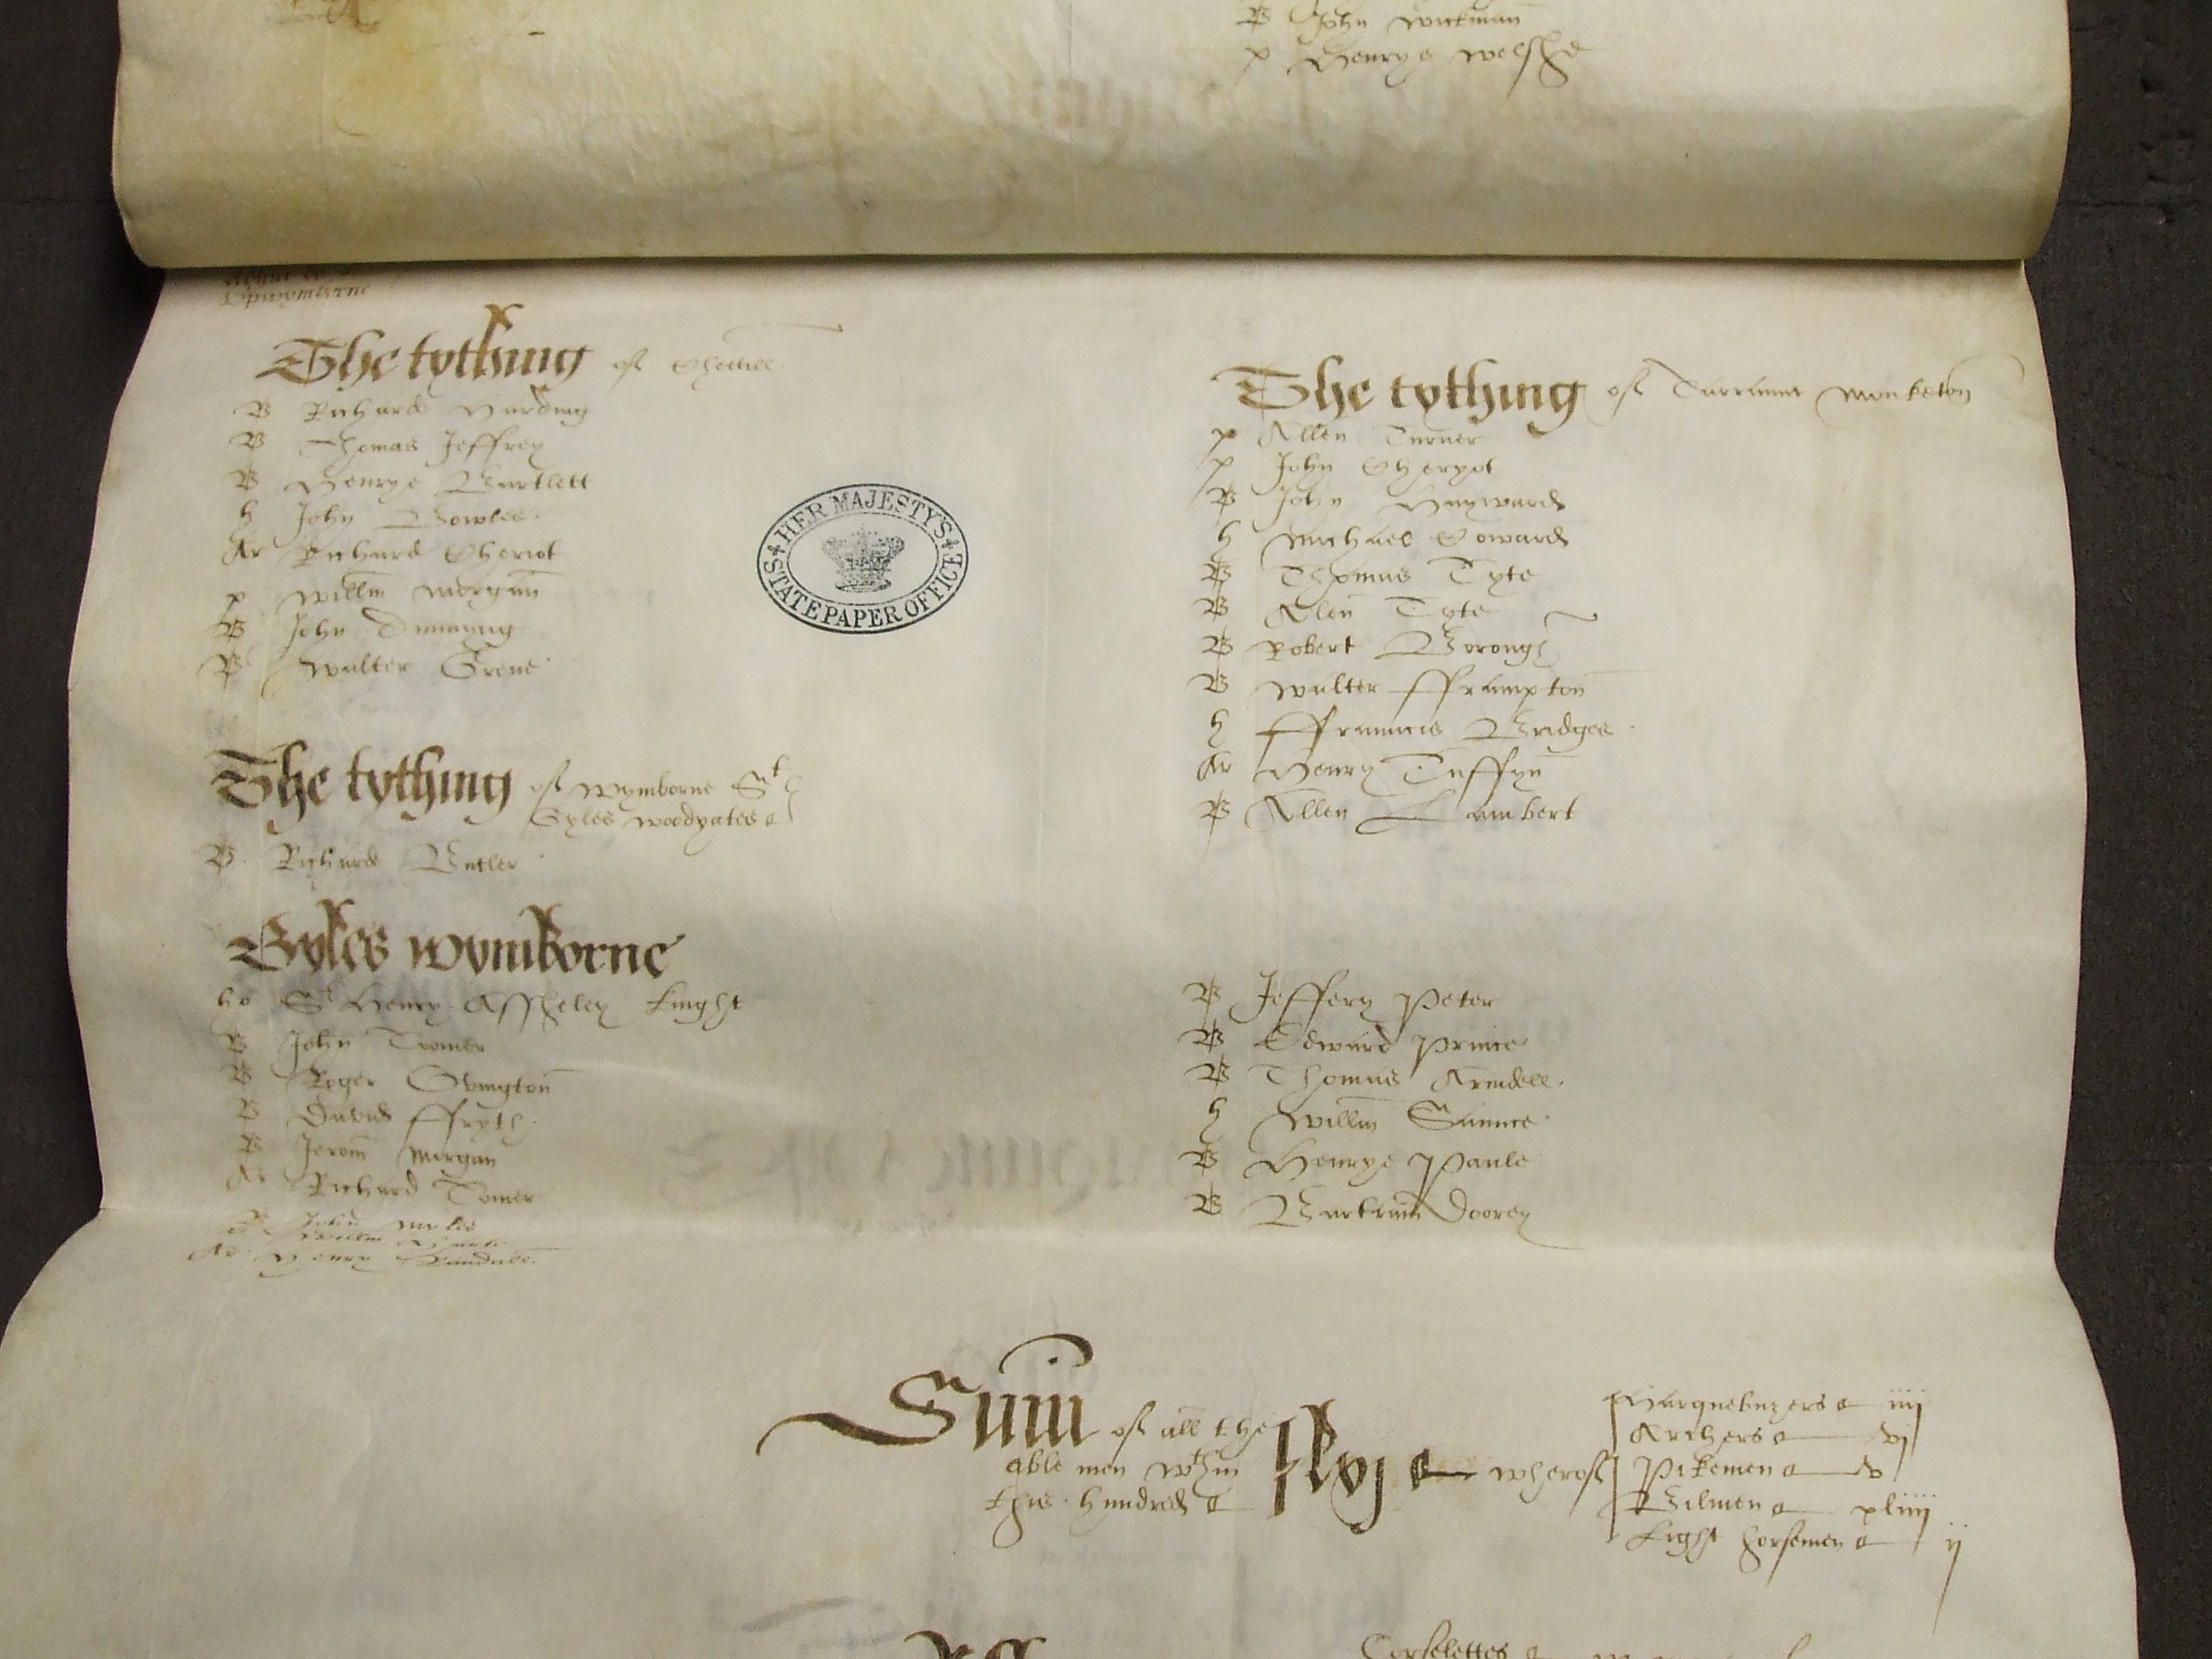 B John Wickman
p Henrye Welshe
Upwymborne
The tything of Chettill
B Richard Harding
B Thomas Jeffrey
B Henrye Bartlett
h John Bowles
Ar Richard Cheriot
p Willm Morgan
B John
B Walter Grene
The tything of Wymborne St
Gyles Woodyates
B Richard Butler
Gyles Wymborne
ho Sr Henry Assheley knyght
B John Tromer
B Roger Ovington
B David ffryth
B Jerom Morgan
Ar Richard Tomer
John Myles
Willm
Ar Henry Randall
The tything of Tarrannt Monketon
p Allen Turner
p John Cheryot
B John Haywarde
h Michael Cowarde
B Thomas Tyte
B Alen Tyte
B Robert Borough
B Walter fframpton
h ffrauncis Bridges
Ar Henry Tuffyn
B Allen Lambert
B Jeffery Peter
B Edward Prince
B Thomas Arndell
h Willm Saunce
B Henrye Paule
B Bartram Doorey
Sum of all the
able men wthin
this hundred
lxvj wherof
Harquebuzers iiij
Archers vj
Pikemen v
Bilmen xliiij
Light horsemen ij
Corselettes
HER MAJESTY'S
STATE PAPER OFFICE